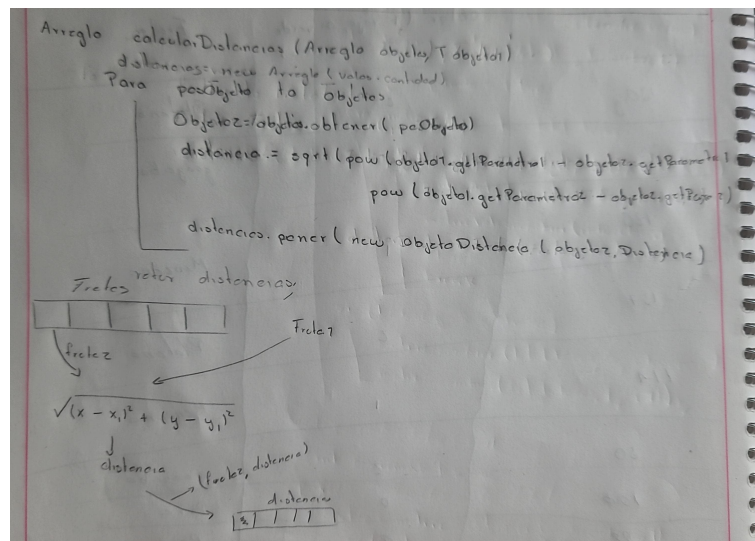 Arreglo calcularDistancias (Arreglo objetos, T objeto1)
distancias = new Arreglo (valor.cantidad)
Para posObjeto to objetos
Objeto2 = objetos.obtener( posObjeto)
distancia = sqrt (pow (objeto1.getParametro1 - objeto2.getParametro1
pow (objeto1.getParametro2 - objeto2.get
distancias.poner ( new objetoDistancia ( objeto2, Distancia )
retur distancias
Fretes
Frete1
frete2
√(x - x₁)² + (y - y₁)²
distancia
(frete2, distancia)
distancias